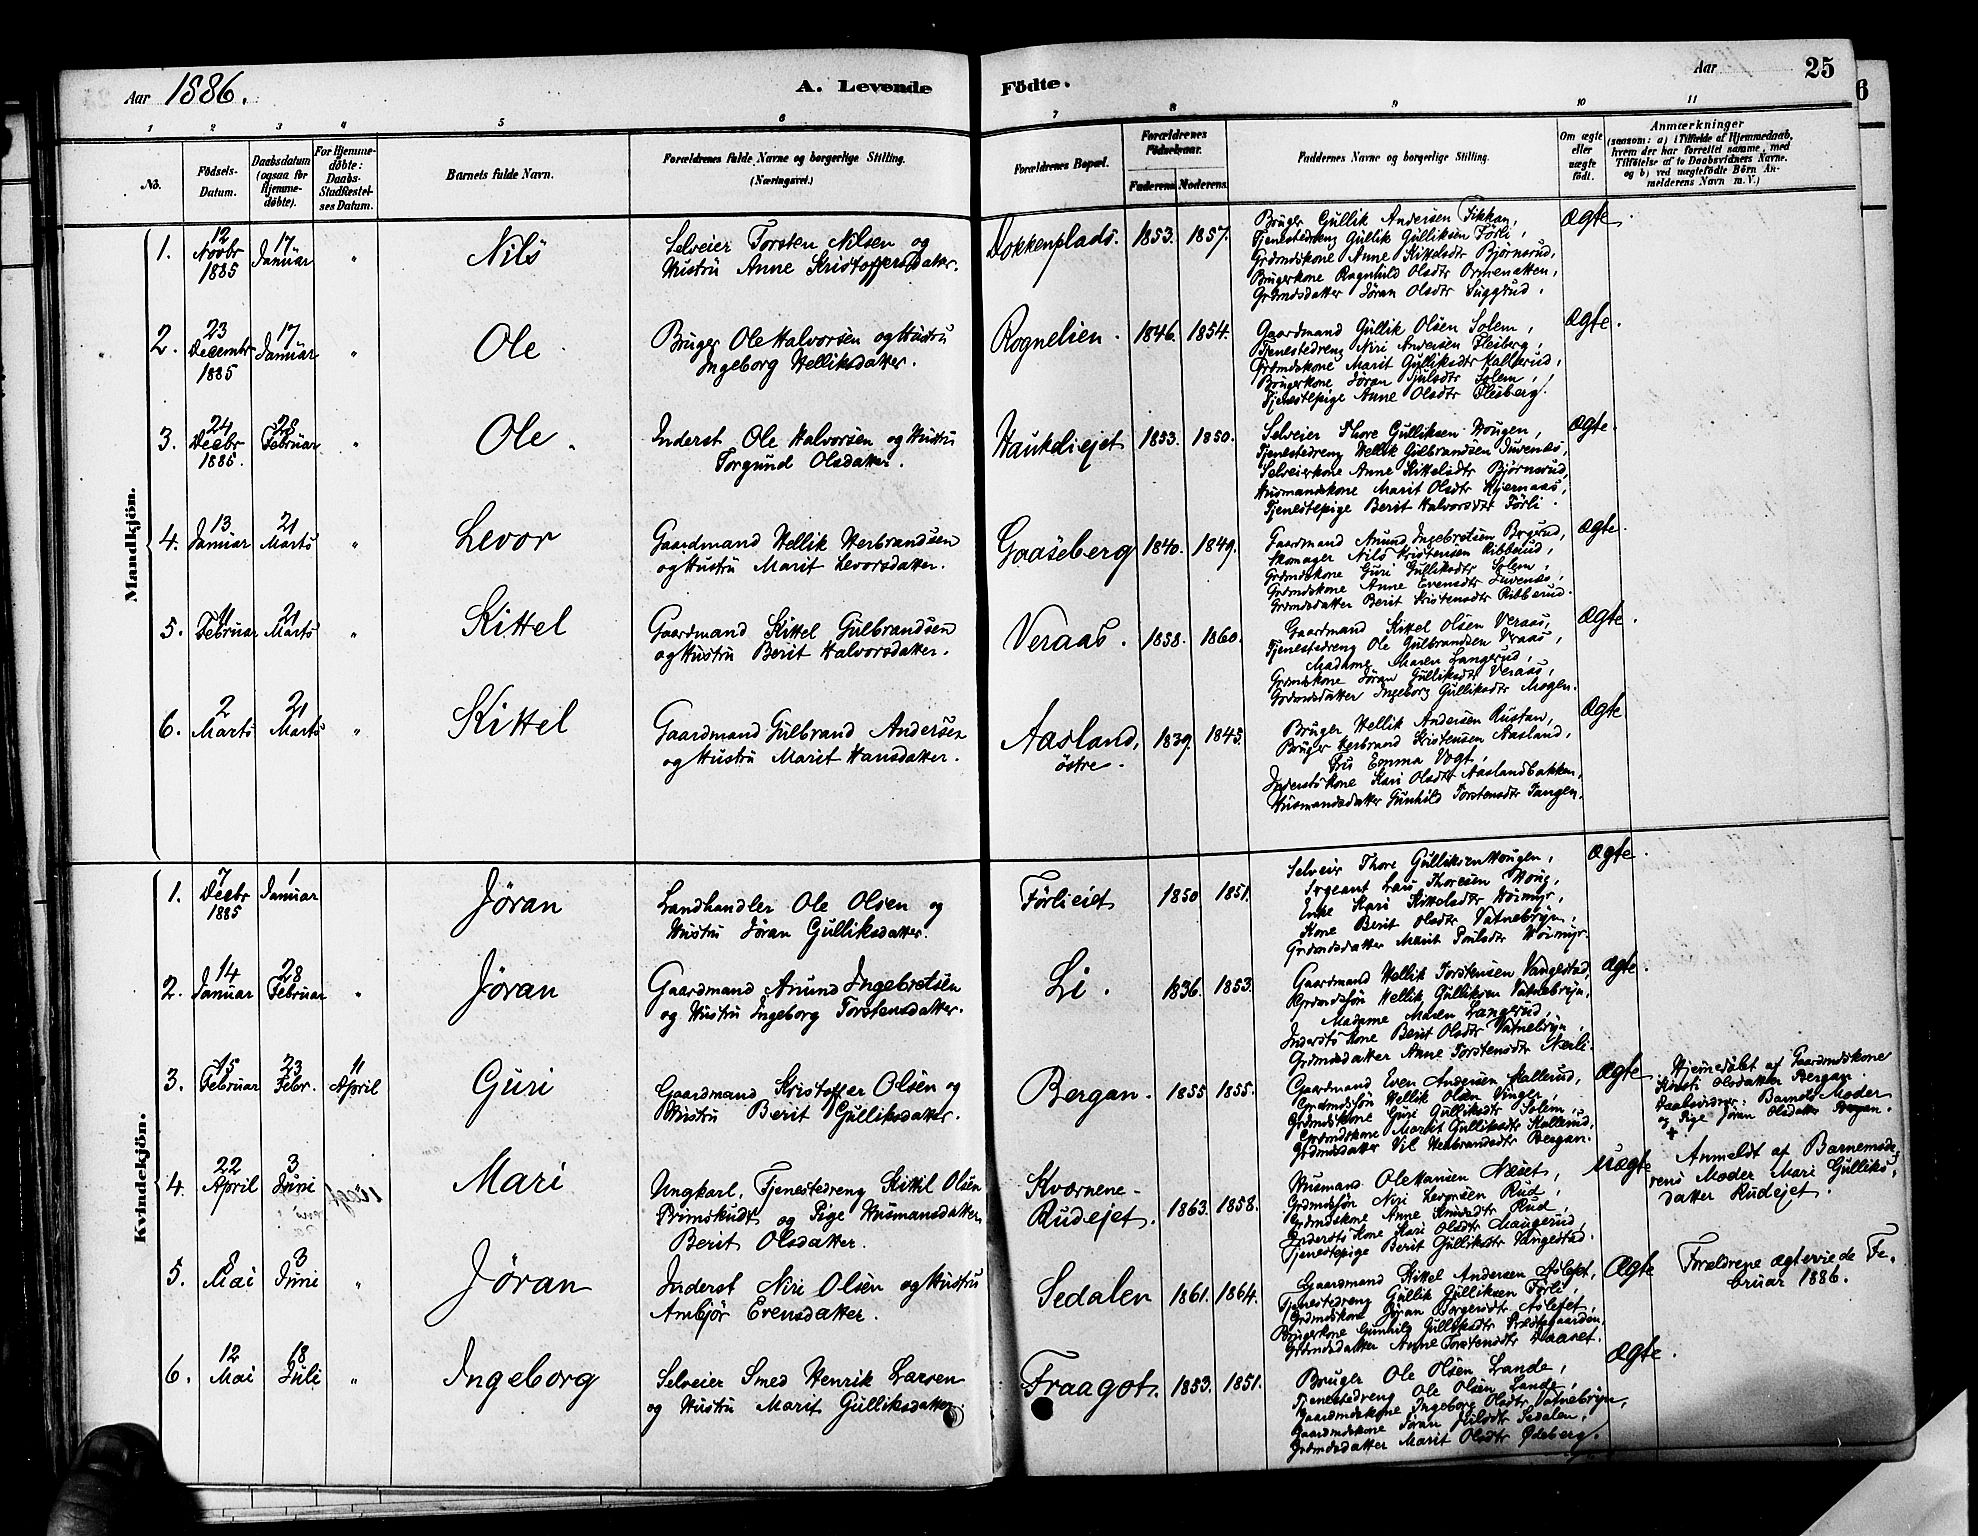 Aar 1886.
A. Levende Fødte.
Aar 25
1 2 3 4 5 6 7 8 9 10 11
No.
Fødsels-Datum.
Daabsdatum (ogsaa for Hjemmedøbte).
For Hjemmedøbte: Daabs-Stadfæstelses Datum.
Barnets fulde Navn.
Forældrenes fulde Navne og borgerlige Stilling.
(Næringsvei.)
Forældrenes Bopæl.
Forældrenes Fødselsaar.
Faderens. Moderens.
Faddernes Navne og borgerlige Stilling.
Om ægte eller uægte født.
Anmærkninger
(saasom: a) i Tilfælde af Hjemmedaab, hvem der har forrettet samme, med Tilføielse af to Daabsvidners Navne. og b) ved uægtefødte Børn Anmelderens Navn m. V.)
Mandkjøn.
1. 12 Novbr 1885 17 Januar " Nils
Selveier Torsten Nilsen og
Hustru Anne Kristoffersdatter.
Dokkenplads. 1853. 1857.
Bruger Gullik Andersen Fikkan,
Tjenestedreng Gullik Gulliksen Førli,
Grdmdskone Anne Kittelsdtr Bjørnsrud,
Brugerkone Ragnhild Olsdtr Ormenatten,
Grdmdsdatter Jøran Olsdtr Suggrud.
ægte.
2. 23 Decembr 1885 17 Januar " Ole
Bruger Ole Halvorsen og Hustru
Ingeborg Helliksdatter.
Rognelien. 1846. 1854.
Gaardmand Gullik Olsen Solem,
Tjenestedreng Niri Andersen Flesberg,
Grdmdskone Marit Gulliksdtr Hallerud,
Brugerkone Jøran Juulsdtr Solem,
Tjenestepige Anne Olsdtr Flesberg.
ægte.
3. 24 Decbr 1885. 28 Februar " Ole.
Inderst Ole Halvorsen og Hustru
Torgund Olsdatter.
Haukeliejet 1853. 1850.
Selveier Thore Gulliksen Hougen,
Tjenestedreng Hellik Gulbrandsen Juvenæs,
Selveierkone Anne Kittelsdtr Bjørnsrud,
Husmandskone Marit Olsdtr Hjernaas,
Tjenestepige Berit Halvorsdtr Førli.
ægte.
4. 13 Januar 21 Marts " Levor
Gaardmand Hellik Herbrandsen
og Hustru Marit Levorsdatter.
Gaaseberg 1840. 1849.
Gaardmand Anund Ingebretsen
Skomager Nils Kristensen Ribberud,
Grdmdskone Guri Gulliksdtr Solem,
Grdmdskone Anne Evensdtr Juvenæs,
Grdmdsdatter Berit Kristensdtr Ribberud.
ægte.
5. 11 Februar 21 Marts " Kittel
Gaardmand Kittel Gulbrandsen
og Hustru Berit Halvorsdatter.
Veraas. 1838. 1860.
Gaardmand Kittel Olsen Veraas,
Tjenestedreng Ole Gulbrandsen Veraas,
Madame Maren Langerud,
Grdmdskone Jøran Gulliksdtr Veraas,
Grdmdsdatter Ingeborg Gulliksdtr Mogen.
ægte.
6. 2 Marts 21 Marts " Kittel
Gaardmand Gulbrand Andersen
og Hustru Marit Hansdatter.
Aasland, østre. 1839. 1845.
Bruger Hellik Andersen Rustan,
Bruger Herbrand Kristensen Aasland,
Fru Emma Vogt,
Inderstkone Kari Olsdtr Aaslandbakken,
Husmandsdatter Gunhild Torstensdtr Tangen.
ægte
Kvindekjøn.
1. 7 Decbr 1885 1 Januar Jøran
Landhandler Ole Olsen og
Hustru Jøran Gulliksdatter.
Førlieiet 1850 1851.
Selveier Thore Gulliksen Hougen,
Sergeant Lars Thoresen Houg,
Enke Kari Kittelsdtr Høimyr,
Kone Berit Olsdtr Vatnebryn,
Grdmdsdatter Marit Poulsdtr Høimyr.
ægte.
2. 14 Januar 28 Februar " Jøran
Gaardmand Anund Ingebretsen
og Hustru Ingeborg Torstensdatter.
Li. 1836. 1853.
Gaardmand Hellik Torstensen Vangestad,
Grdmdssøn Hellik Gulliksen Vatnebryn,
Madame Maren Langerud,
Inderstkone Berit Olsdtr Vatnebryn,
Grdmdsdatter Anne Torstensdtr Nærli.
ægte.
3. 15 Februar 23 Febr. 11 April Guri
Gaardmand Kristoffer Olsen og
Hustru Berit Gulliksdatter.
Bergan. 1855 1855.
Gaardmand Even Andersen Hallerud,
Grdmdssøn Hellik Olsen Vinger,
Grdmdskone Guri Gulliksdtr Solem,
Grdmdskone Marit Gulliksdtr Hallerud,
Grdmdsdatter Vil Herbrandsdtr Bergan.
ægte.
Hjemmedøbt af Gaardmdskone
Kirsti Olsdatter Bergan.
Daabsvidner: Barnets Moder
og Pige Jøran Olsdatter Bergan.
4. 22 April 3 Juni Mari
Ungkarl, Tjenestedreng Kittil Olsen
Brimskudt og Pige Husmansdatter
Berit Olsdatter.
Kvernene-Rudejet. 1863. 1858.
Husmand Ole Hansen Næset,
Grdmdssøn Niri Levorsen Rud,
Grdmdskone Anne Knudsdtr Rud,
Inderstkone Kari Olsdtr Maugerud,
Tjenestepige Berit Gulliksdtr Vangestad.
uægte
Anmeldt af Barnemode-
rens Moder Mari Gulliks-
datter Rudejet.
5. Mai 3 Juni " Jøran
Inderst Niri Olsen og Hustru
Ambjør Evensdatter.
Sedalen 1861. 1864.
Gaardmand Kittel Andersen
Tjenestedreng Gullik Gulliksen Førli,
Grdmdskone Jøran Borgersdtr Aslefet,
Brugerkone Gunhild Gulliksdtr Prestegaarden,
Grdmdsdatter Anne Torstensdtr Haaset.
ægte
Forældrene ægteviede Fe-
bruar 1886.
6. 12 Mai 18 Juli " Ingeborg
Selveier Smed Henrik Larsen
og Hustru Marit Gulliksdatter.
Fraagot. 1853. 1851.
Bruger Ole Olsen Lande,
Tjenestedreng Ole Olsen Lande,
Gaardmdskone Ingeborg Olsdtr Vatnebryn,
Gaardmdskone Jøran Juulsdtr Sedalen,
Grdmdsdatter Marit Olsdtr Ødeberg.
ægte.